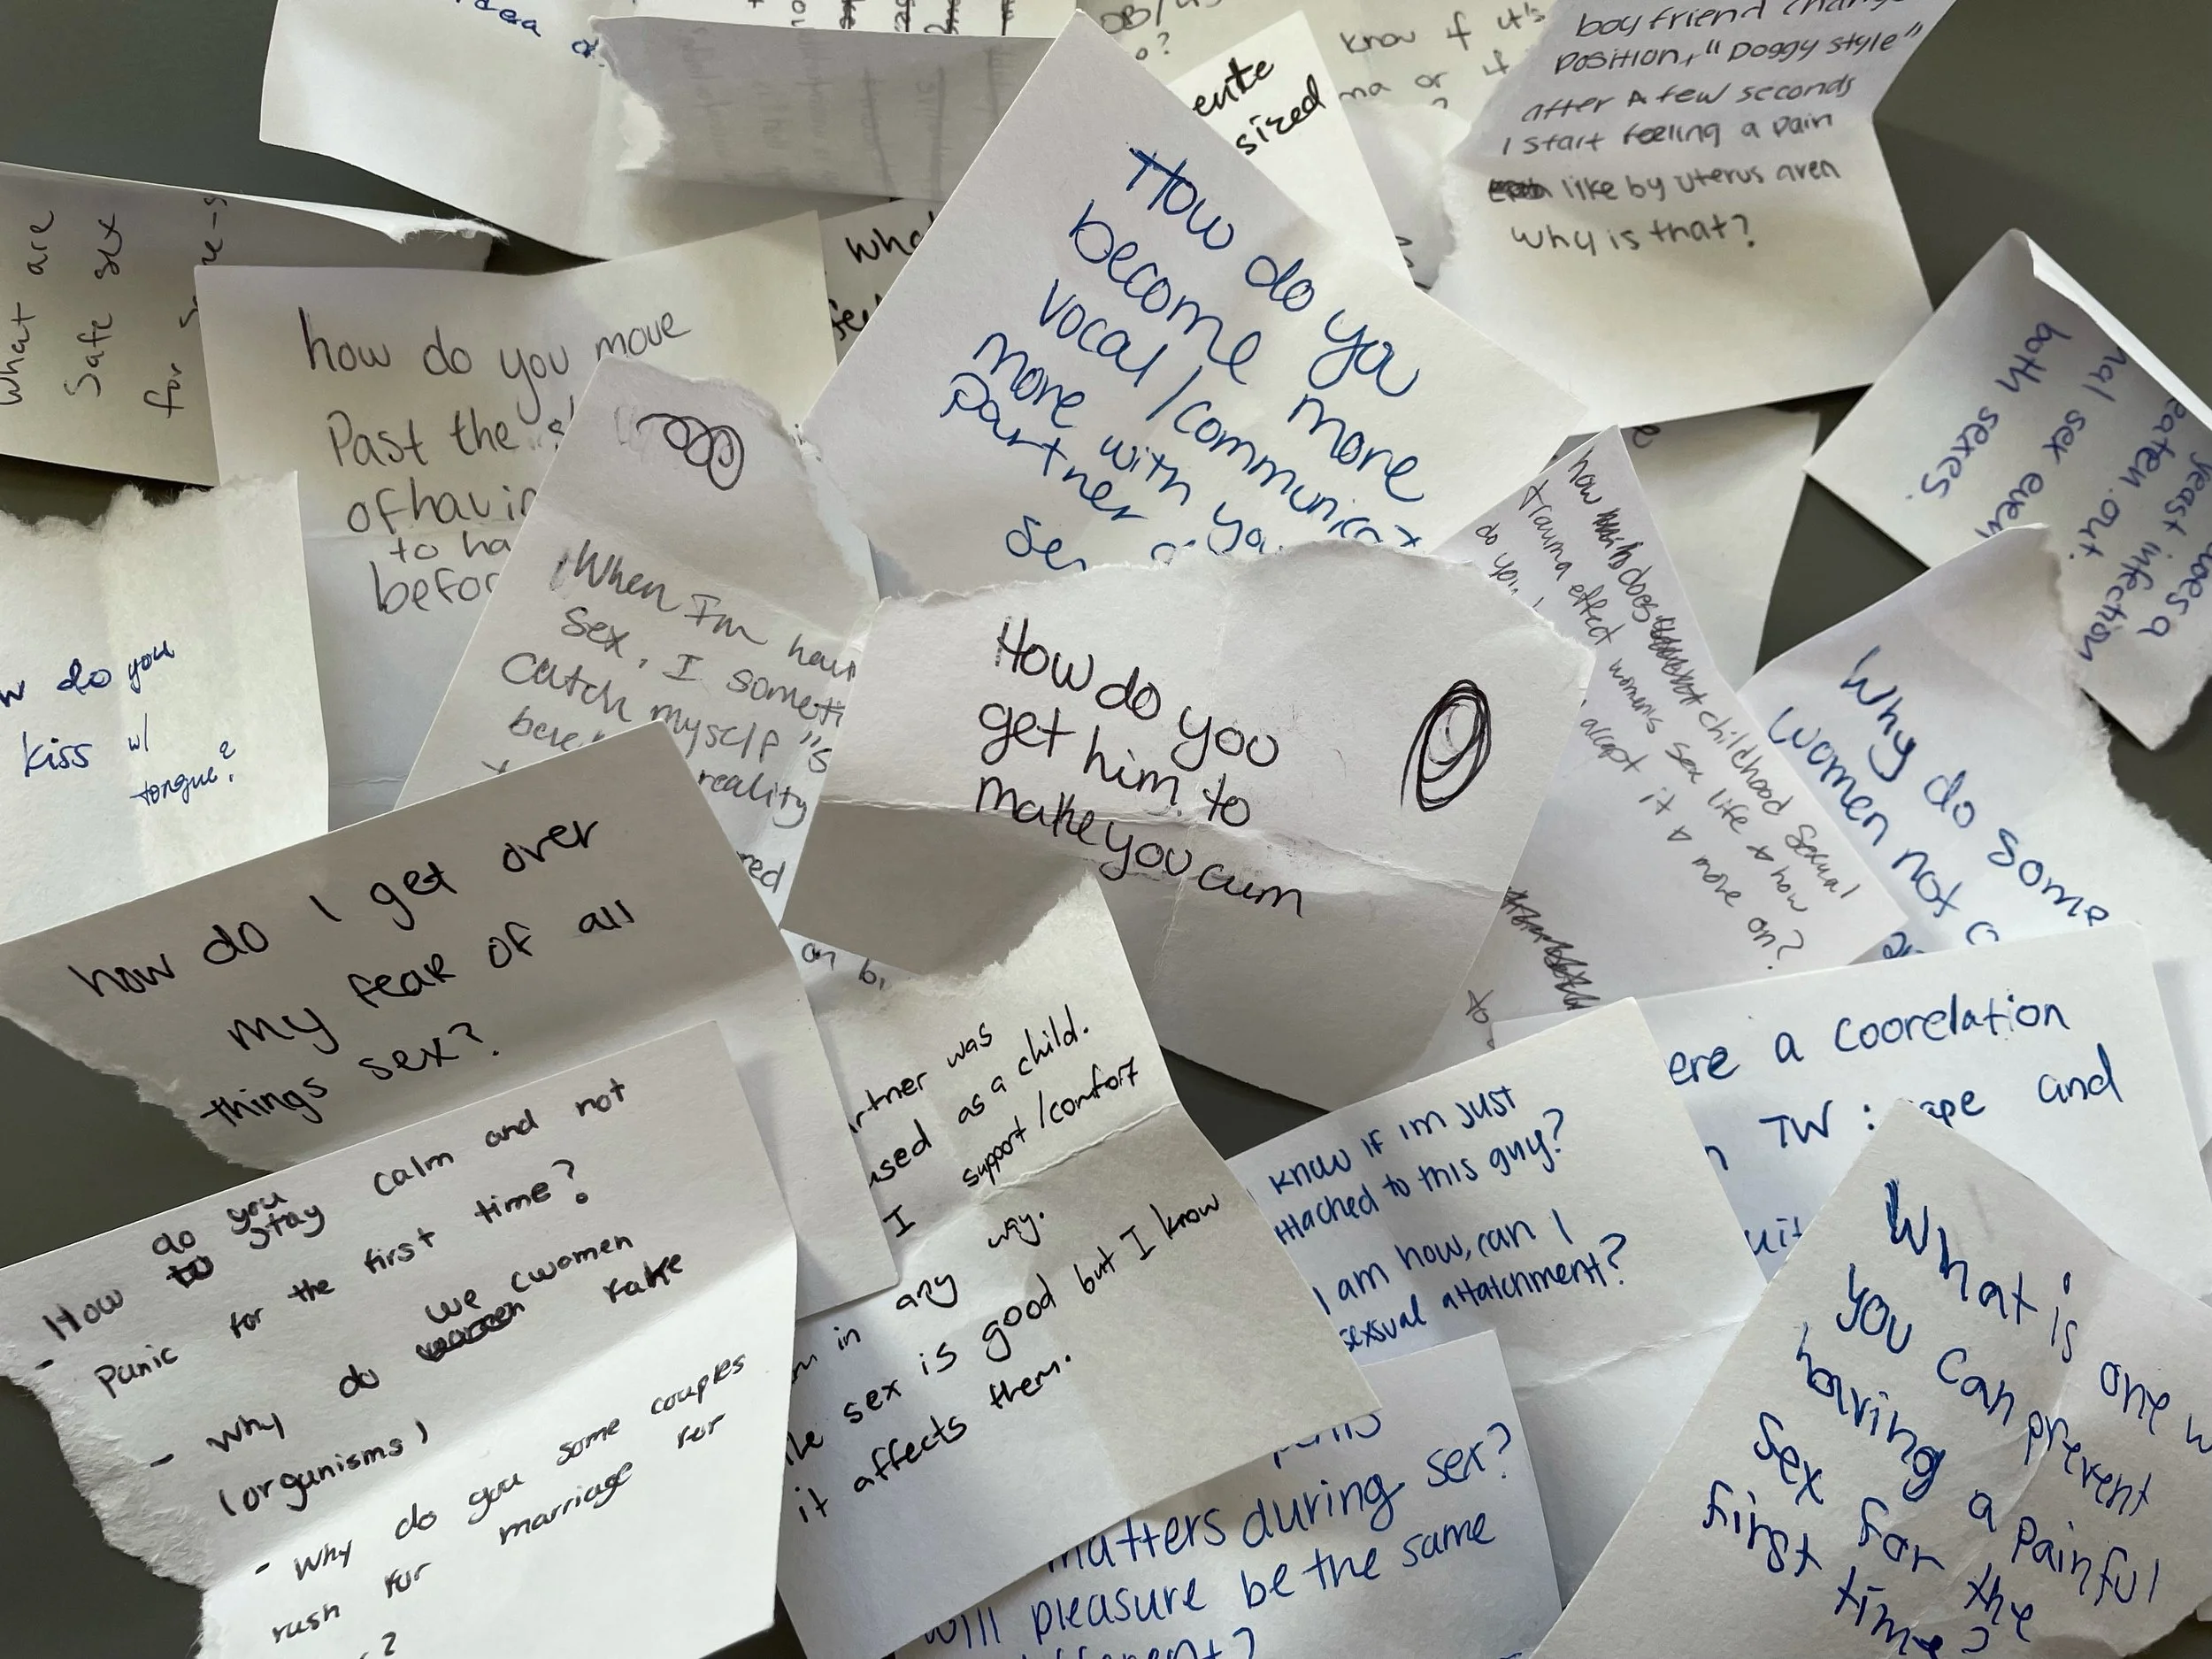 boyfriend
position, "Doggy style"
after A few seconds
I start feeling a pain
like by uterus aren
why is that?
know if it's
or if
ente
sized
How do you
become more
vocal / communicat
more with you
partner
What are
Safe sex
for
how do you move
Past the
of havin
to ha
befor
both sexes.
nal sex even
eaten out.
yeast infection
does a
When I'm havi
Sex, I someti
Catch myself "s
reality
how does childhood sexual
trauma effect womens sex life & how
do you accept it & move on?
How do you
get him to
make you cum
w do you
kiss w/
tongue?
Why do some
women not
how do I get over
my fear of all
things sex?
ere a coorelation
TW : ape and
rtner was
used as a child.
I support/comfort
in any way.
sex is good but I know
it affects them.
know if im just
ttached to this guy?
I am how, can I
sexsual attatchment?
How do you stay calm and not
Panic for the first time?
- Why do we (women fake
(organisms)
- Why do you some couples
rush for marriage for
?
What is one w
you can prevent
having a painful
sex for the
first time?
matters during sex?
will pleasure be the same